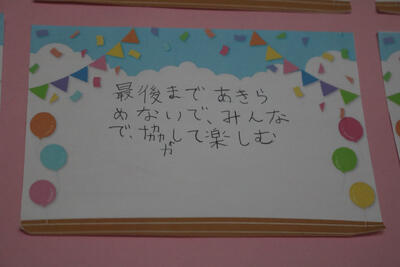 最後まであきら
めないで、みんな
で、協力して楽しむ